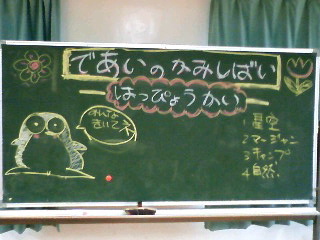 であいのかみしばい
はっぴょうかい
きいてネ
1 星空
2 マージャン
3 キャンプ
4 自然